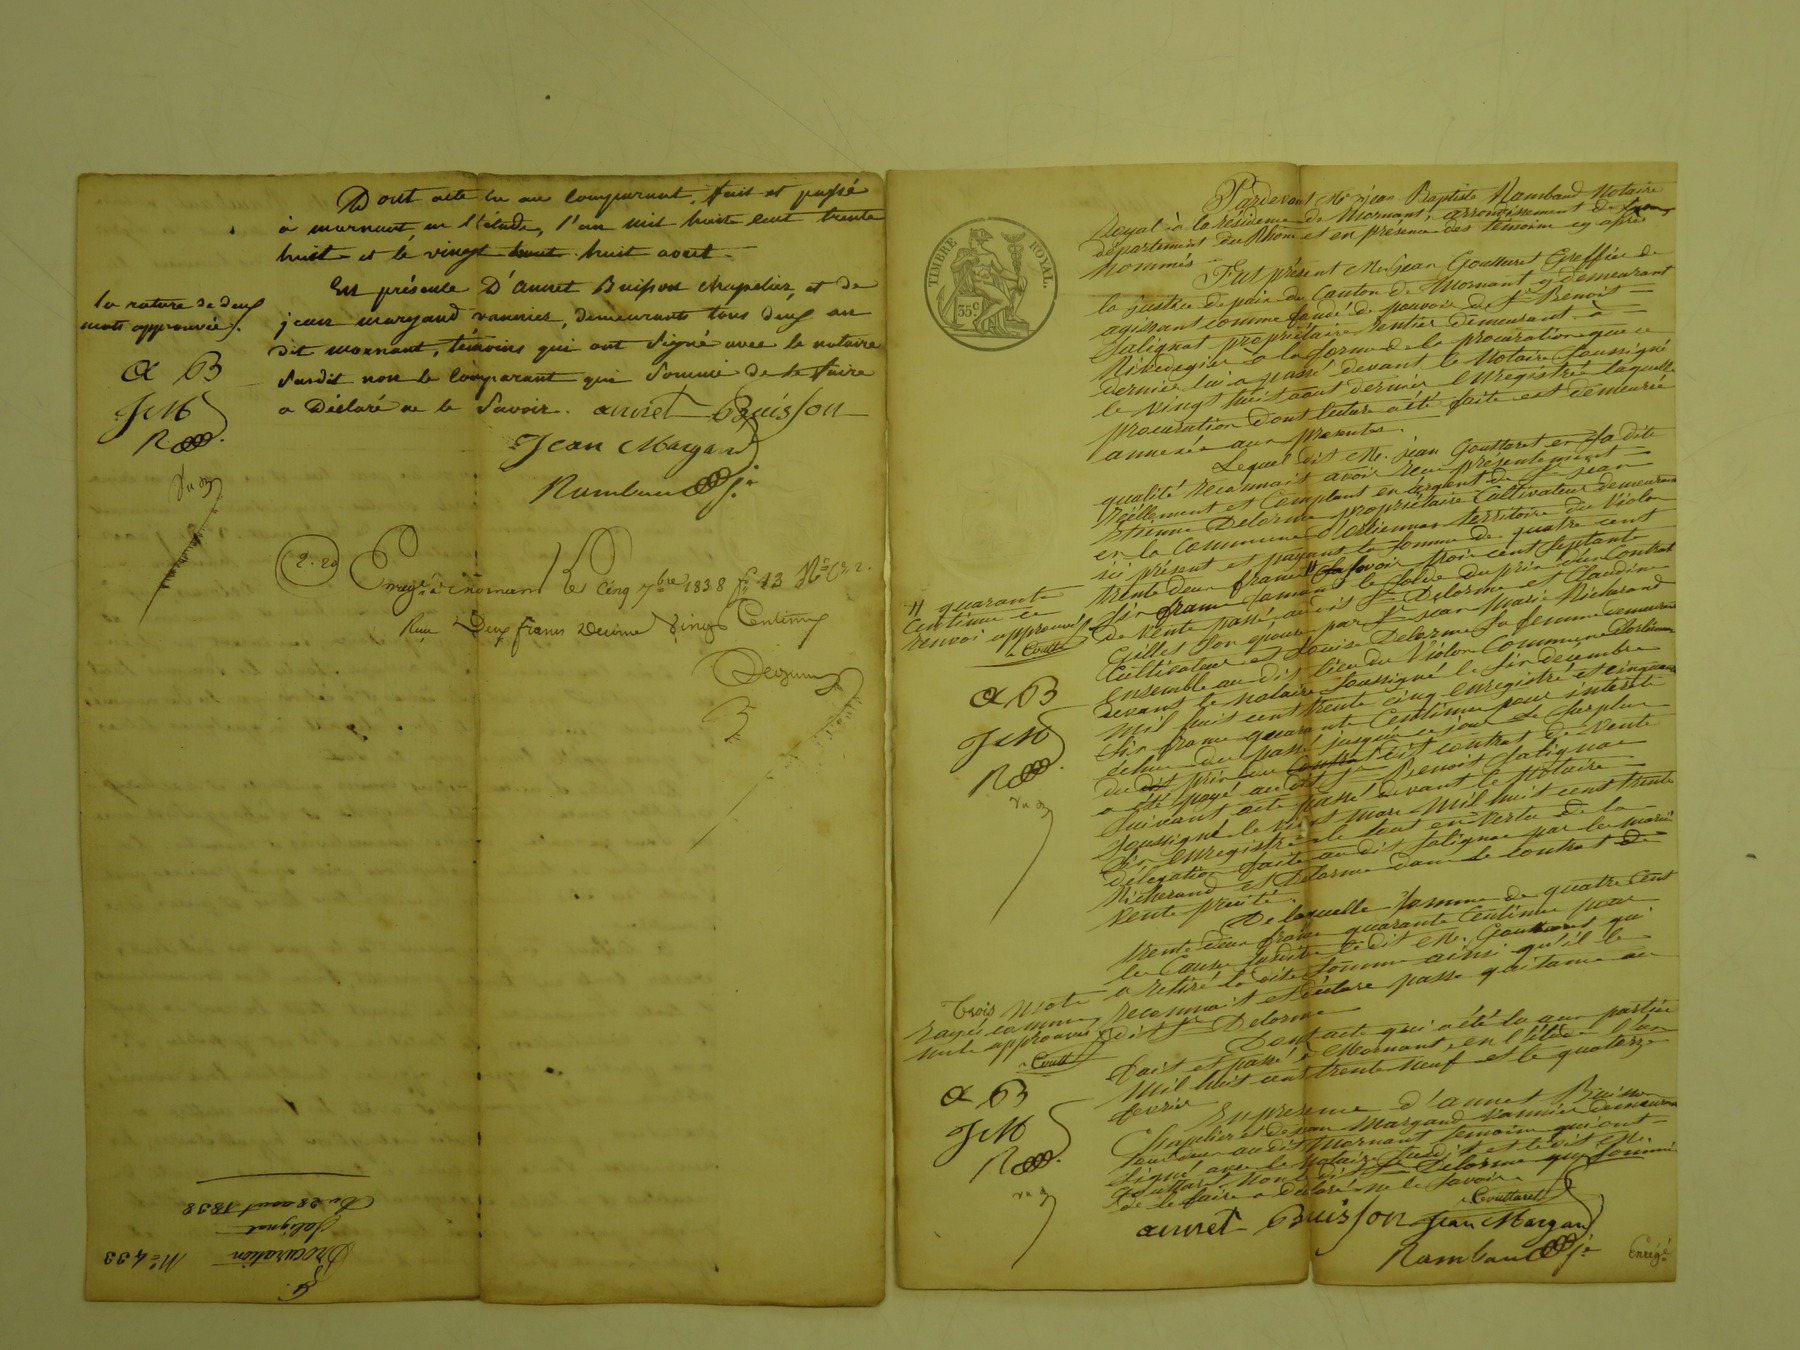 Dont acte lu au Comparant, fait et passé
à mornant en l'étude, l'an mil huit cent trente
huit et le vingt huit août
En présence D'annet Buisson chapelier, et de
jean margand vannier, demeurants tous deux au
dit mornant, témoins qui ont Signé avec le notaire
Susdit non le Comparant qui Sommé de le faire
a Déclaré ne le Savoir. annet Buisson
Jean Margand
Rambaud
la rature de deux
mots approuvée
a B
JM
R
2.20
Enreg.é à mornant le cinq 7bre 1838 f.º 13
Reçu Deux francs Decime vingt Centimes
Procuration
Salignat
Du 28 août 1838
Nº 433
TIMBRE ROYAL.
35 c
Pardevant Me. jean Baptiste Rambaud Notaire
Royal à la résidence de Mornant, arrondissement de Lyon
département du Rhône et en présence des témoins cy après
nommés
Fut présent Me. jean Gouttaret Greffier de
la justice de paix du Canton de Mornant y demeurant
agissant comme fondé de pouvoir de Sr. Benoit
Salignat propriétaire rentier demeurant à
à la forme de la procuration que ce
dernier lui a passé devant le Notaire Soussigné
le vingt huit août dernier enregistrée laquelle
procuration dont lecture a été faite est demeurée
annexée aux présentes.
Lequel dit Me. jean Gouttaret en sa dite
qualité reconnait avoir reçu présentement
réellement et Comptant en argent de Sr. jean
Etienne Delorme propriétaire Cultivateur demeurant
en la Commune d'Orliennas territoire du Violon
ici présent et payant la somme de quatre cent
trente deux francs " Savoir trois cent septante
Six francs formant le Solde du prix d'un Contrat
de vente passé audit Sr. Delorme et Claudine
Gilles Son épouse par Sr. jean Marie Richerand
Cultivateur et Louise Delorme sa femme demeurant
ensemble au dit lieu du Violon Commune d'orliennas
devant le notaire Soussigné le Six décembre
mil huit cent trente cinq enregistré et cinquante
Six francs quarante Centimes pour intérêts
échus du passé jusqu'à ce jour le Surplus
du dit prix au dit contrat de vente
a été payé au dit Sr. Benoit Salignat
Suivant acte passé devant le Notaire
Soussigné le vingt mars mil huit cent trente
Six enregistré le tout en vertu de la
délégation faite au dit Salignat par les mariés
Richerand et Delorme dans le contrat de
vente précité.
De laquelle somme de quatre Cent
trente deux francs quarante Centimes pour
les Causes Susdites le dit Me. Gouttaret qui
a retiré la dite Somme ainsi qu'il le
reconnait et déclare passe quitance au
dit Sr. Delorme
Dont acte qui a été lu aux parties
Fait et passé à Mornant en l'étude l'an
mil huit cent trente neuf et le quatorze
fevrier
En présence d'annet Buisson
Chapelier et de jean Margand vannier demeurant
tous deux au dit Mornant temoins qui ont
signé avec le Notaire Susdit et le dit Me.
Gouttaret Non le dit Sr. Delorme qui Sommé
de le faire a déclaré ne le Savoir
Gouttaret
annet Buisson Jean Margand
Rambaud
Enreg.é
" quarante
Centimes ce
renvoi approuvé
Goutt
a B
JM
R
Trois mots
rayés comme
nuls approuvés
Goutt
a B
JM
R